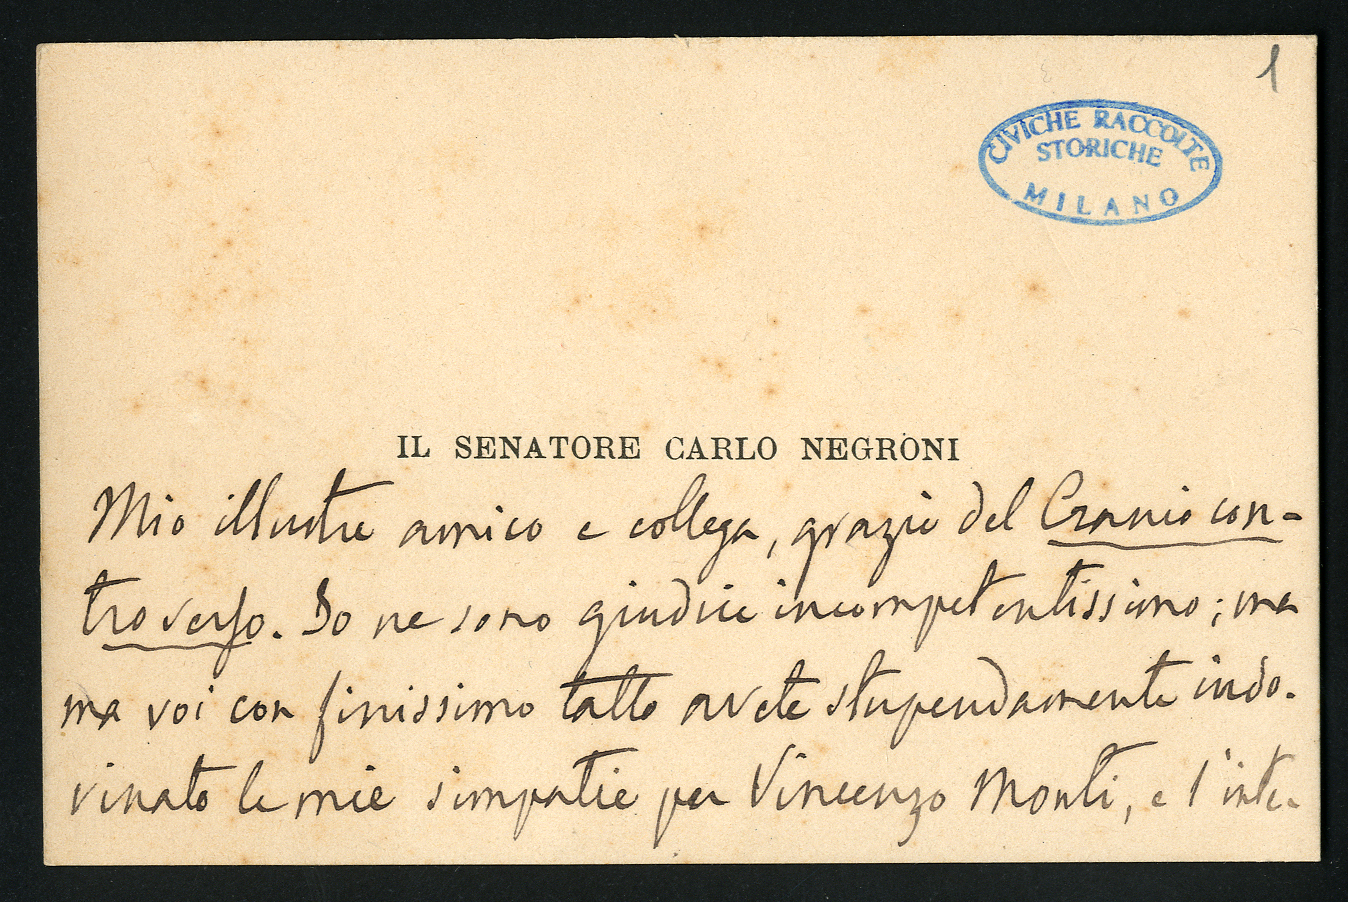 1
CIVICHE RACCOLTE
STORICHE
MILANO
IL SENATORE CARLO NEGRONI
Mio illustre amico e collega, grazie del Cranio con-
troverso. Io ne sono giudice incompetentissimo; ma
ma voi con finissimo tatto avete stupendamente indo-
vinato le mie simpatie per Vincenzo Monti, e l'inte-